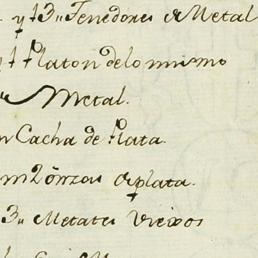 y 13„ Tenedores de Metal
y 1 Platon de lo mismo
Metal.
n Cacha de Plata.
m 2 onzas de plata.
3„ Metates Viexos